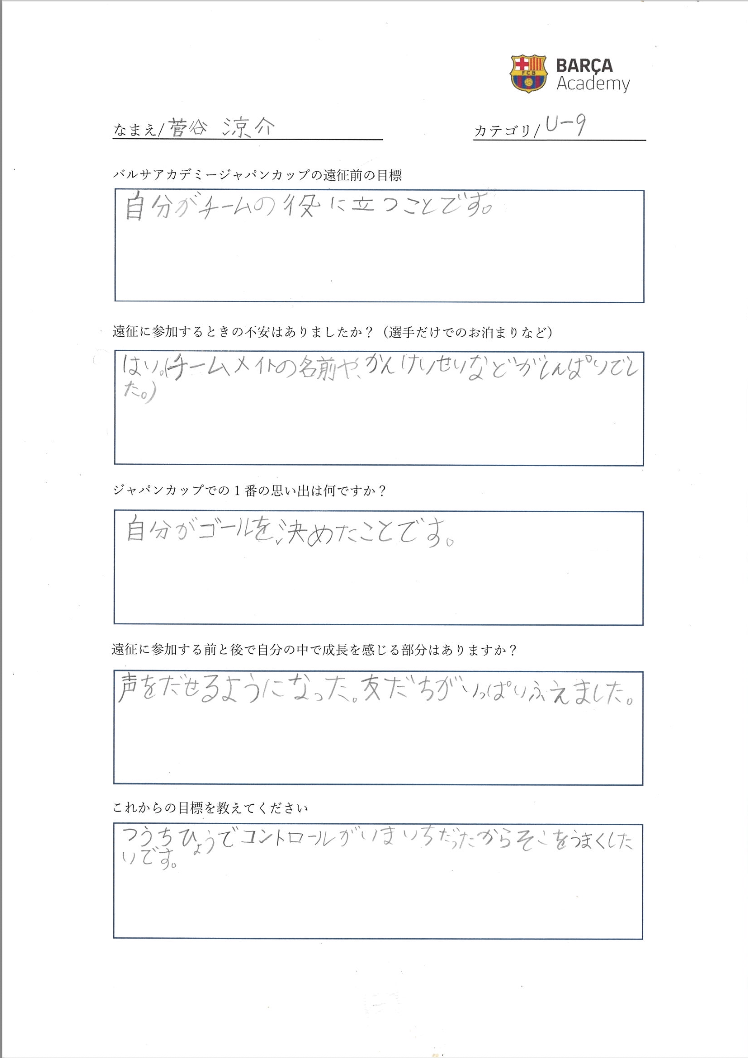 BARÇA
Academy
なまえ/菅谷 涼介
カテゴリ/U-9
バルサアカデミージャパンカップの遠征前の目標
自分がチームの役に立つことです。
遠征に参加するときの不安はありましたか?(選手だけでのお泊まりなど)
はい。(チームメイトの名前や、かんけいせいなどがしんぱいでし
た。)
ジャパンカップでの1番の思い出は何ですか?
自分がゴールを決めたことです。
遠征に参加する前と後で自分の中で成長を感じる部分はありますか?
声をだせるようになった。友だちがいっぱいふえました。
これからの目標を教えてください
つうちひょうでコントロールがいまいちだったからそこをうまくした
いです。